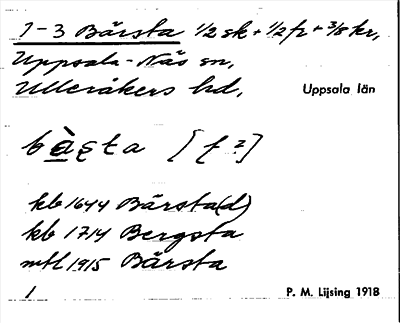 1-3 Bärsta 1/2 sk + 1/2 fr + 3/8 kr,
Uppsala-Näs sn,
Ulleråkers hd, Uppsala län
bàsta [f 2]
kb 1644 Bärsta(d)
kb 1714 Bergsta
mtl 1915 Bärsta
1 P. M. Lijsing 1918